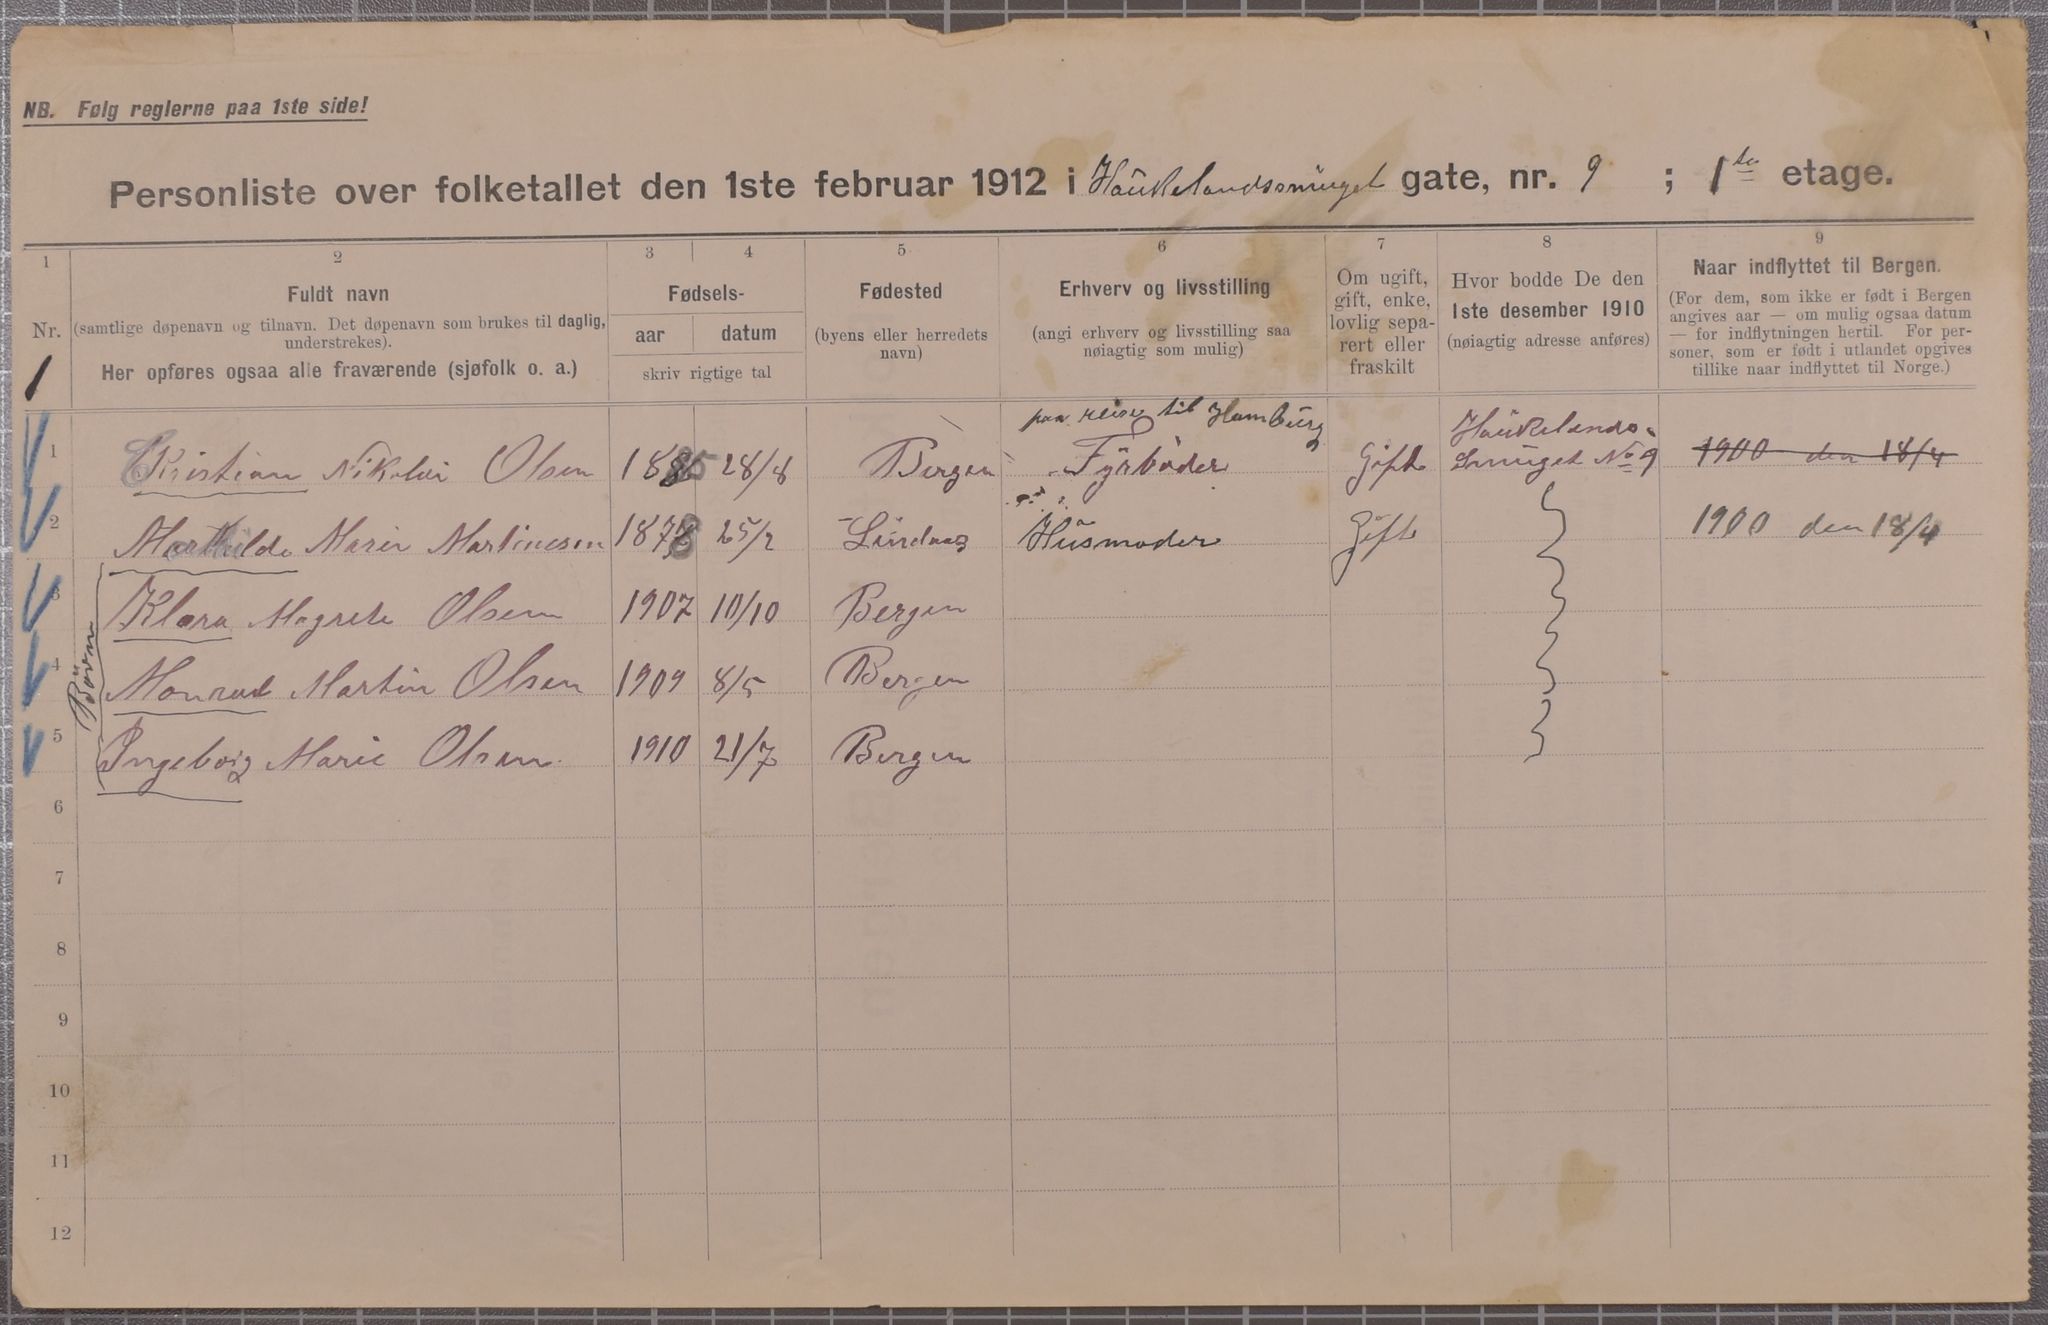 NB. Følg reglerne paa 1ste side!
Personliste over folketallet den 1ste februar 1912 i Haukelandssmuget gate, nr. 9 ; 1ste etage.
1 2 3 4 5 6 7 8 9
Nr.
1
Fuldt navn
(samtlige døpenavn og tilnavn. Det døpenavn som brukes til daglig, understrekes).
Her opføres ogsaa alle fraværende (sjøfolk o. a.)
Fødsels-
aar datum
skriv rigtige tal
Fødested
(byens eller herredets navn)
Erhverv og livsstilling
(angi erhverv og livsstilling saa nøiagtig som mulig)
Om ugift, gift, enke, lovlig sepa-rert eller fraskilt
Hvor bodde De den
1ste desember 1910
(nøiagtig adresse anføres)
Naar indflyttet til Bergen.
(For dem, som ikke er født i Bergen
angives aar — om mulig ogsaa datum
— for indflytningen hertil. For per-
soner, som er født i utlandet opgives
tillike naar indflyttet til Norge.)
paa reise til Hamburg
1 Kristian Nikolai Olsen 1885 28/8 Bergen Fyrbøder Gift Haukelands-smuget No 9 1900 den 18/4
2 Mathilde Marie Martinesen 1878 25/2 Lindaas Husmoder Gift 1900 den 18/4
Börn
3 Klara Magrete Olsen 1907 10/10 Bergen
4 Monrad Martin Olsen 1909 8/5 Bergen
5 Ingeborg Marie Olsen 1910 21/7 Bergen
6
7
8
9
10
11
12